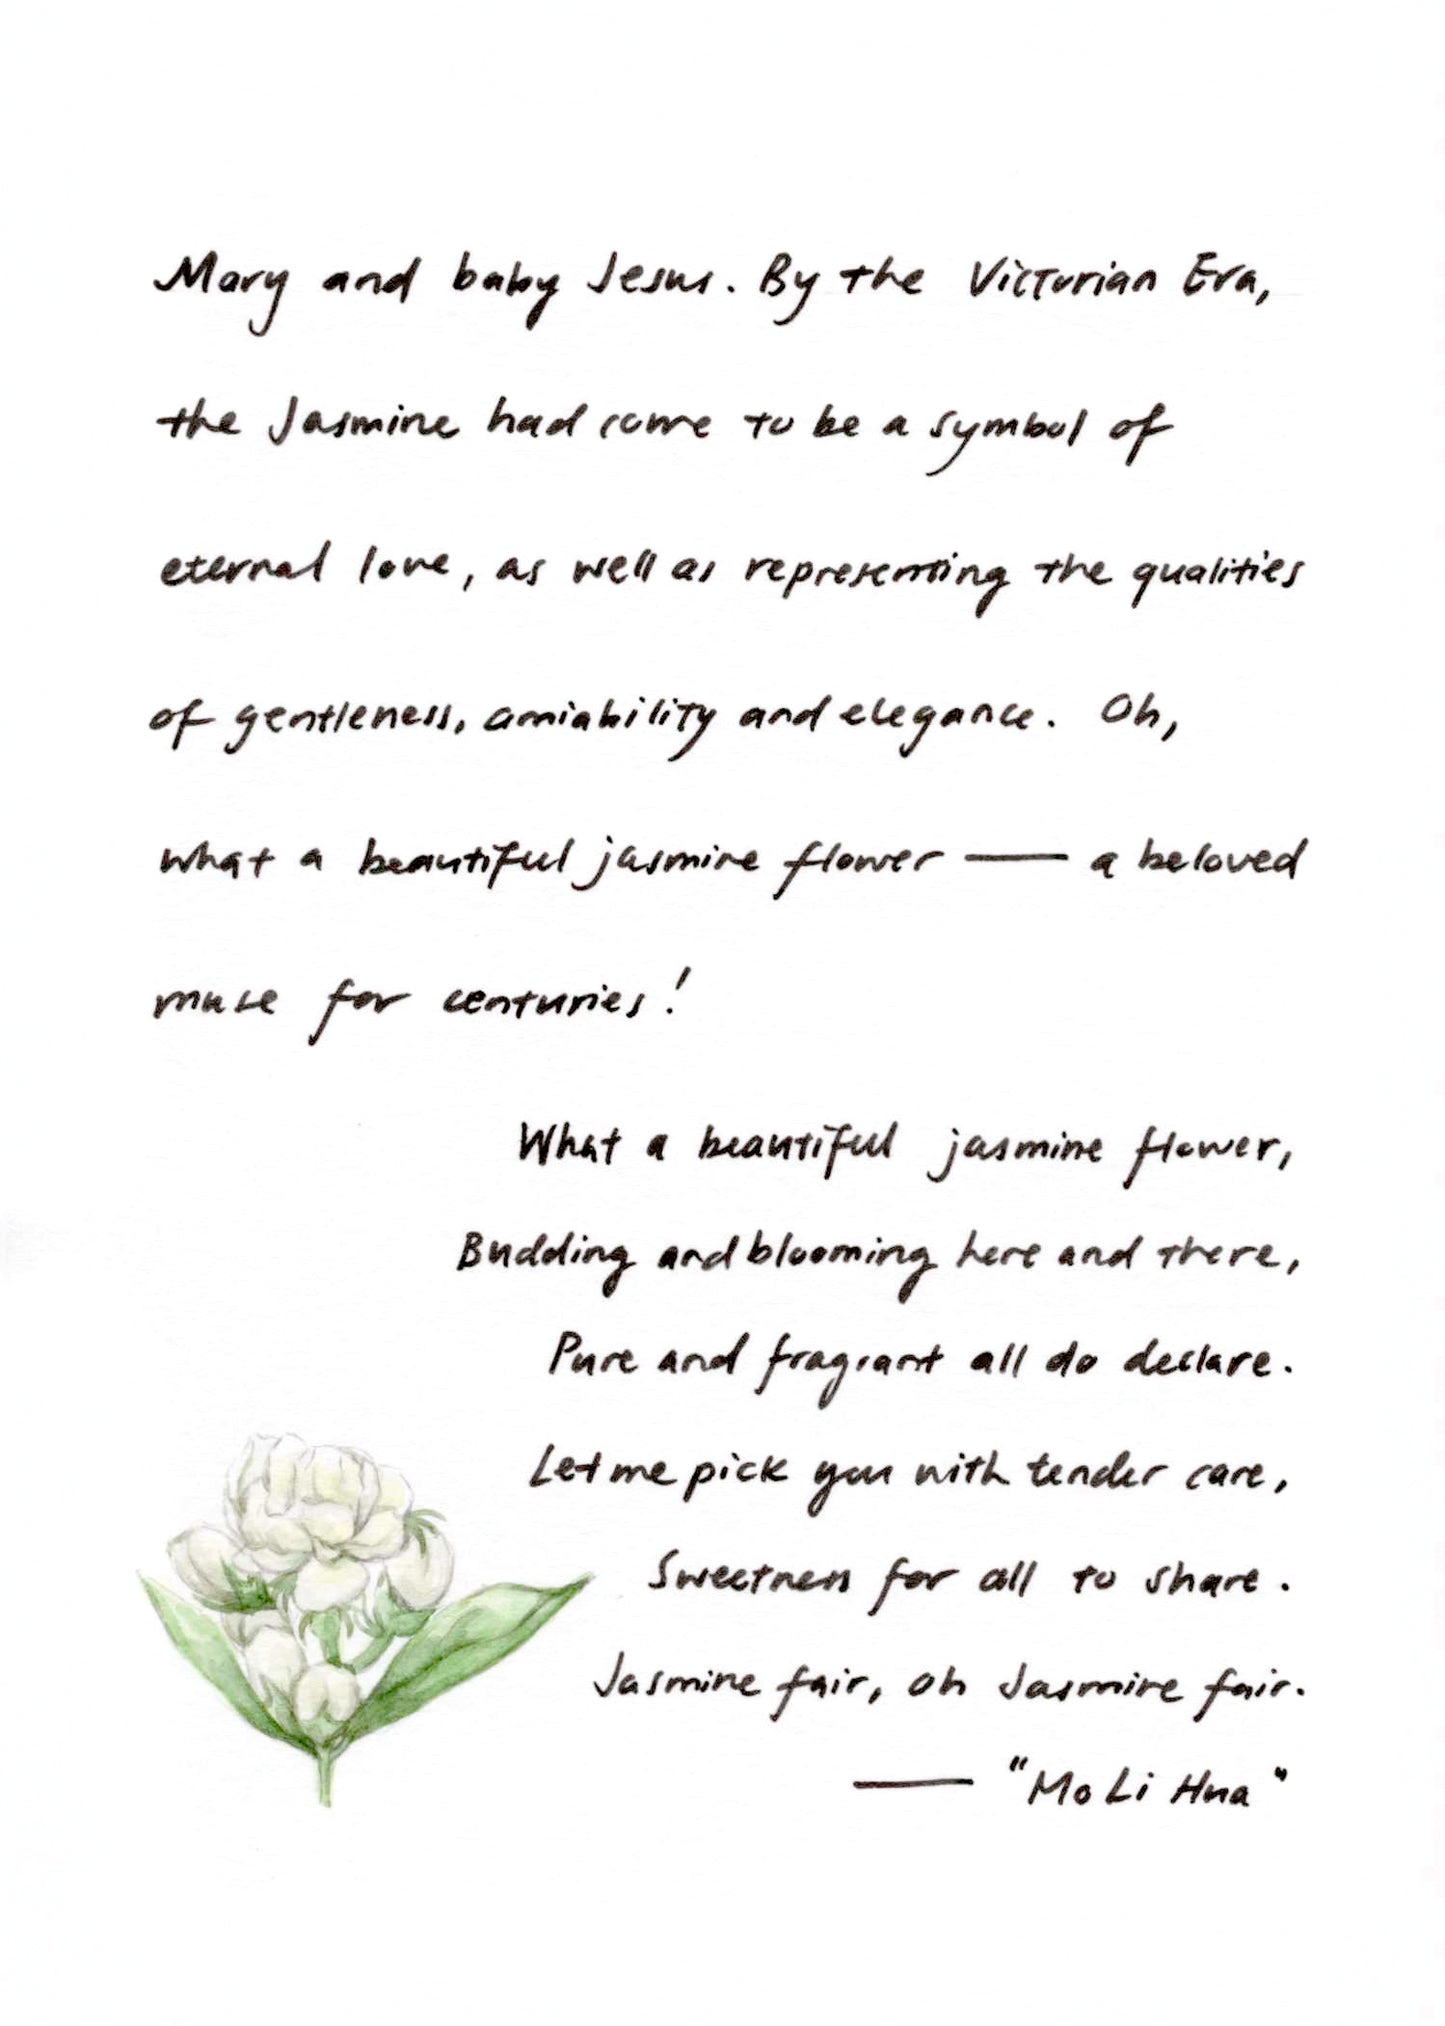 Mary and baby Jesus. By the Victorian Era,
the Jasmine had come to be a symbol of
eternal love, as well as representing the qualities
of gentleness, amiability and elegance. Oh,
what a beautiful jasmine flower — a beloved
muse for centuries!
What a beautiful jasmine flower,
Budding and blooming here and there,
Pure and fragrant all do declare.
Let me pick you with tender care,
Sweetness for all to share.
Jasmine fair, oh Jasmine fair.
— "Mo Li Hua"